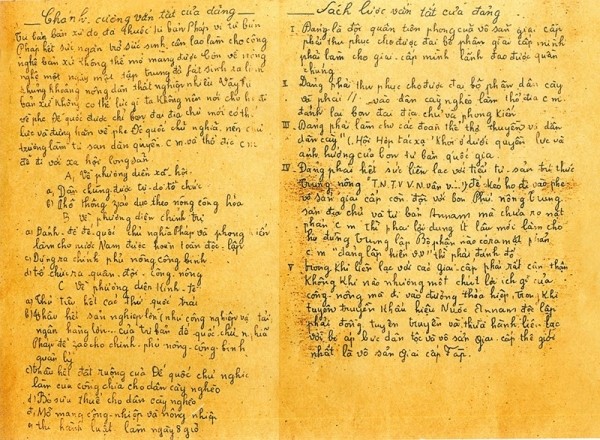 Chanh cương vắn tắt của đảng
Tư bản bản xứ đã thuộc tư bản Pháp, vì tư bản
Pháp hết sức ngăn trở sức sinh sản làm cho công
nghệ bản xứ không thể mở mang được. Còn về nông
nghệ một ngày một tập trung đã phát sinh ra lắm
khủng hoảng nông dân thất nghiệp nhiều. Vậy tư
bản xứ không có thế lực gì ta không nên nói cho họ đi
về phe đế quốc được, chỉ bọn đại địa chủ mới có thế
lực và đứng hẳn về phe đế quốc chủ nghĩa, nên chủ
trương làm tư sản dân quyền c.m. và thổ địa c.m.
để đi tới xã hội cộng sản.
A, Về phương diện xã hội.
a, Dân chúng được tự do tổ chức
b) Phổ thông giáo dục theo nông công hóa
B Về phương diện chính trị
a) Đánh đổ đế quốc chủ nghĩa Pháp và phong kiến
làm cho nước Nam được hoàn toàn độc lập
c) Dựng ra chính phủ nông công binh
d) Tổ chức ra quân đội công nông
C Về phương diện Kinh-tế
a) Thủ tiêu hết các thứ quốc trái
b) Thâu hết sản nghiệp lớn (như công nghiệp vận tải
ngân hàng lớn... của tư bản đế quốc chủ nghĩa
Pháp để giao cho chính-phủ nông-công-binh
quản lý
c) Thâu hết đất ruộng của Đế quốc chủ nghĩa
làm của công chia cho dân cày nghèo
d) Bỏ sưu thuế cho dân cày nghèo
đ) Mở mang công-nghiệp và nông nghiệp
e) Thi hành luật làm ngày 8 giờ
Sách lược vắn tắt của đảng
I. Đảng là đội quân tiên phong của vô sản giai cấp
phải thu phục cho được đại bộ phận giai cấp mình
phải làm cho giai cấp mình lãnh đạo được quần
chúng.
II. Đảng phải thu phục cho được đại bộ phận dân cày
và phải // vào dân cày nghèo làm thổ địa c.m.
đánh đổ bọn đại địa chủ và phong kiến
III. Đảng phải làm cho các đoàn thể thợ thuyền và dân
dân cày" (. Hội Hợp tác xã) khỏi ở dưới quyền lực và
ảnh hưởng của bọn tư bản quốc gia.
IV Đảng phải hết sức liên lạc với tiểu tư sản, trí thức
trung nông "T.N. TV. V. N. vân v...) để kéo họ đi vào phe
vô sản giai cấp còn đối với bọn phú nông trung
sản địa chủ và tư bản Annam mà chưa rõ mặt
phản c.m thì phải lợi dụng ít lâu mới làm cho
họ đứng trung lập. Bộ phận nào đã ra mặt phản
c.m (đảng lập hiến vv) thì phải đánh đổ
V Trong khi liên lạc với các giai cấp phải rất cẩn thận
không khi nào nhường một chút lợi ích gì của
công-nông mà đi vào đường thỏa hiệp, trong khi
tuyên truyền khẩu hiệu nước Annam độc lập
phải đồng tuyên truyền và thực hành liên lạc
với bị áp bức dân tộc và vô sản giai cấp thế giới
nhất là vô sản giai cấp Pháp.